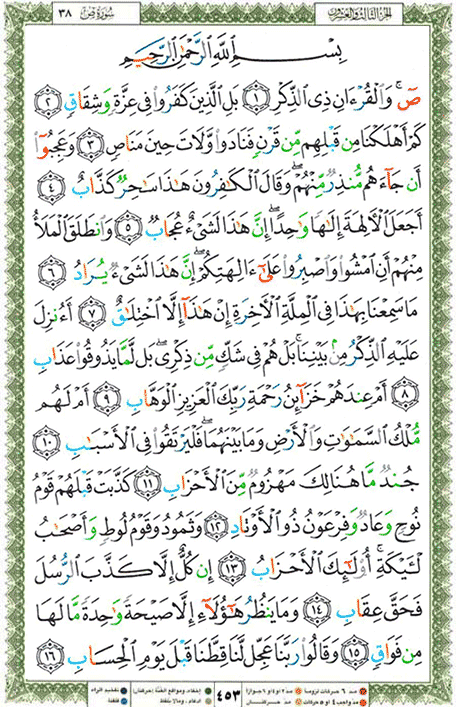 الجزء الثالث والعشرون
سورة ص ٣٨
بِسْمِ ٱللَّهِ ٱلرَّحْمَٰنِ ٱلرَّحِيمِ
صٓ ۚ وَٱلْقُرْءَانِ ذِى ٱلذِّكْرِ ١ بَلِ ٱلَّذِينَ كَفَرُوا۟ فِى عِزَّةٍ وَشِقَاقٍ ٢
كَمْ أَهْلَكْنَا مِن قَبْلِهِم مِّن قَرْنٍ فَنَادَوا۟ وَّلَاتَ حِينَ مَنَاصٍ ٣ وَعَجِبُوٓا۟
أَن جَآءَهُم مُّنذِرٌ مِّنْهُمْ ۖ وَقَالَ ٱلْكَٰفِرُونَ هَٰذَا سَٰحِرٌ كَذَّابٌ ٤
أَجَعَلَ ٱلْءَالِهَةَ إِلَٰهًا وَٰحِدًا ۖ إِنَّ هَٰذَا لَشَىْءٌ عُجَابٌ ٥ وَٱنطَلَقَ ٱلْمَلَأُ
مِنْهُمْ أَنِ ٱمْشُوا۟ وَٱصْبِرُوا۟ عَلَىٰٓ ءَالِهَتِكُمْ ۖ إِنَّ هَٰذَا لَشَىْءٌ يُرَادُ ٦
مَا سَمِعْنَا بِهَٰذَا فِى ٱلْمِلَّةِ ٱلْءَاخِرَةِ إِنْ هَٰذَآ إِلَّا ٱخْتِلَٰقٌ ٧ أَءُنزِلَ
عَلَيْهِ ٱلذِّكْرُ مِنۢ بَيْنِنَا ۚ بَلْ هُمْ فِى شَكٍّ مِّن ذِكْرِى ۖ بَل لَّمَّا يَذُوقُوا۟ عَذَابِ
٨ أَمْ عِندَهُمْ خَزَآئِنُ رَحْمَةِ رَبِّكَ ٱلْعَزِيزِ ٱلْوَهَّابِ ٩ أَمْ لَهُم
مُّلْكُ ٱلسَّمَٰوَٰتِ وَٱلْأَرْضِ وَمَا بَيْنَهُمَا ۖ فَلْيَرْتَقُوا۟ فِى ٱلْأَسْبَٰبِ ١٠
جُندٌ مَّا هُنَالِكَ مَهْزُومٌ مِّنَ ٱلْأَحْزَابِ ١١ كَذَّبَتْ قَبْلَهُمْ قَوْمُ
نُوحٍ وَعَادٌ وَفِرْعَوْنُ ذُو ٱلْأَوْتَادِ ١٢ وَثَمُودُ وَقَوْمُ لُوطٍ وَأَصْحَٰبُ
لْـَٔيْكَةِ ۚ أُو۟لَٰٓئِكَ ٱلْأَحْزَابُ ١٣ إِن كُلٌّ إِلَّا كَذَّبَ ٱلرُّسُلَ
فَحَقَّ عِقَابِ ١٤ وَمَا يَنظُرُ هَٰٓؤُلَآءِ إِلَّا صَيْحَةً وَٰحِدَةً مَّا لَهَا
مِن فَوَاقٍ ١٥ وَقَالُوا۟ رَبَّنَا عَجِّل لَّنَا قِطَّنَا قَبْلَ يَوْمِ ٱلْحِسَابِ ١٦
مد ٦ حركات لزوما مد ٢ او ٤ او ٦ جوازا
مد واجب ٤ او ٥ حركات مد حركتان
٤٥٣
إخفاء، ومواقع الغنة (حركتان) تفخيم الراء
ادغام، وما لا يلفظ قلقلة